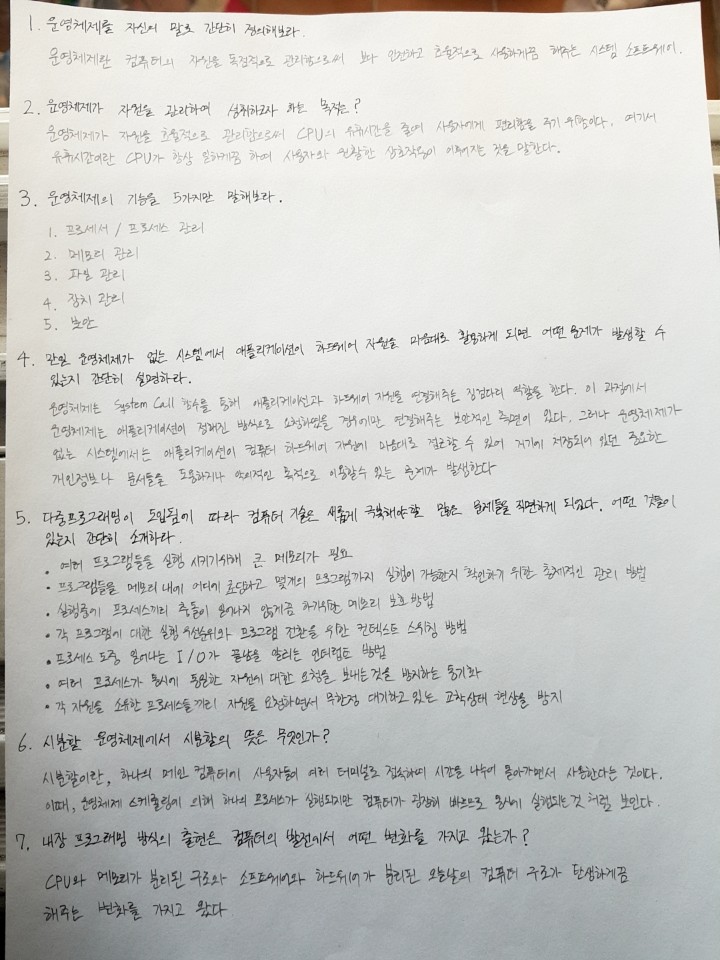 1. 운영체제를 자신의 말로 간단히 정의해보라.
운영체제란 컴퓨터의 자원을 독점적으로 관리함으로써 보다 안전하고 효율적으로 사용하게끔 해주는 시스템 소프트웨어.
2. 운영체제가 자원을 관리하여 성취하고자 하는 목적은?
운영체제가 자원을 효율적으로 관리함으로써 CPU의 유휴시간을 줄여 사용자에게 편리함을 주기 위함이다. 여기서
유휴시간이란 CPU가 항상 일하게끔 하여 사용자와 원활한 상호작용이 이루어지는 것을 말한다.
3. 운영체제의 기능을 5가지만 말해보라.
1. 프로세서 / 프로세스 관리
2. 메모리 관리
3. 파일 관리
4. 장치 관리
5. 보안
4. 만일 운영체제가 없는 시스템에서 애플리케이션이 하드웨어 자원을 마음대로 활용하게 되면 어떤 문제가 발생할 수
있는지 간단히 설명하라.
운영체제는 System Call 함수를 통해 애플리케이션과 하드웨어 자원을 연결해주는 징검다리 역할을 한다. 이 과정에서
운영체제는 애플리케이션이 정해진 방식으로 요청하였을 경우에만 연결해주는 보안적인 측면이 있다. 그러나 운영체제가
없는 시스템에서는 애플리케이션이 컴퓨터 하드웨어 자원에 마음대로 접근할 수 있어 거기에 저장되어 있던 중요한
개인정보나 문서들을 도용하거나 악의적인 목적으로 이용할수 있는 문제가 발생한다
5. 다중프로그래밍이 도입됨에 따라 컴퓨터 기술은 새롭게 극복해야할 많은 문제들을 직면하게 되었다. 어떤 것들이
있는지 간단히 소개하라.
• 여러 프로그램들을 실행 시키기위해 큰 메모리가 필요
• 프로그램들을 메모리 내에 어디에 할당하고 몇개의 프로그램까지 실행이 가능한지 확인하기 위한 총체적인 관리 방법
• 실행중에 프로세스끼리 충돌이 일어나지 않게끔 하기위한 메모리 보호 방법
• 각 프로그램에 대한 실행 우선순위와 프로그램 전환을 위한 컨텍스트 스위칭 방법
• 프로세스 도중 일어나는 I/O가 끝남을 알리는 인터럽트 방법
• 여러 프로세스가 동시에 동일한 자원에 대한 요청을 보내는것을 방지하는 동기화
• 각 자원을 소유한 프로세스들끼리 자원을 요청하면서 무한정 대기하고 있는 교착상태 현상을 방지
6. 시분할 운영체제에서 시분할의 뜻은 무엇인가?
시분할이란, 하나의 메인 컴퓨터에 사용자들이 여러 터미널로 접속하여 시간을 나누어 돌아가면서 사용한다는 것이다.
이때, 운영체제 스케줄링에 의해 하나의 프로세스가 실행되지만 컴퓨터가 굉장히 빠르므로 동시에 실행되는것 처럼 보인다.
7. 내장 프로그래밍 방식의 출현은 컴퓨터의 발전에서 어떤 변화를 가지고 왔는가?
CPU와 메모리가 분리된 구조와 소프트웨어와 하드웨어가 분리된 오늘날의 컴퓨터 구조가 탄생하게끔
해주는 변화를 가지고 왔다